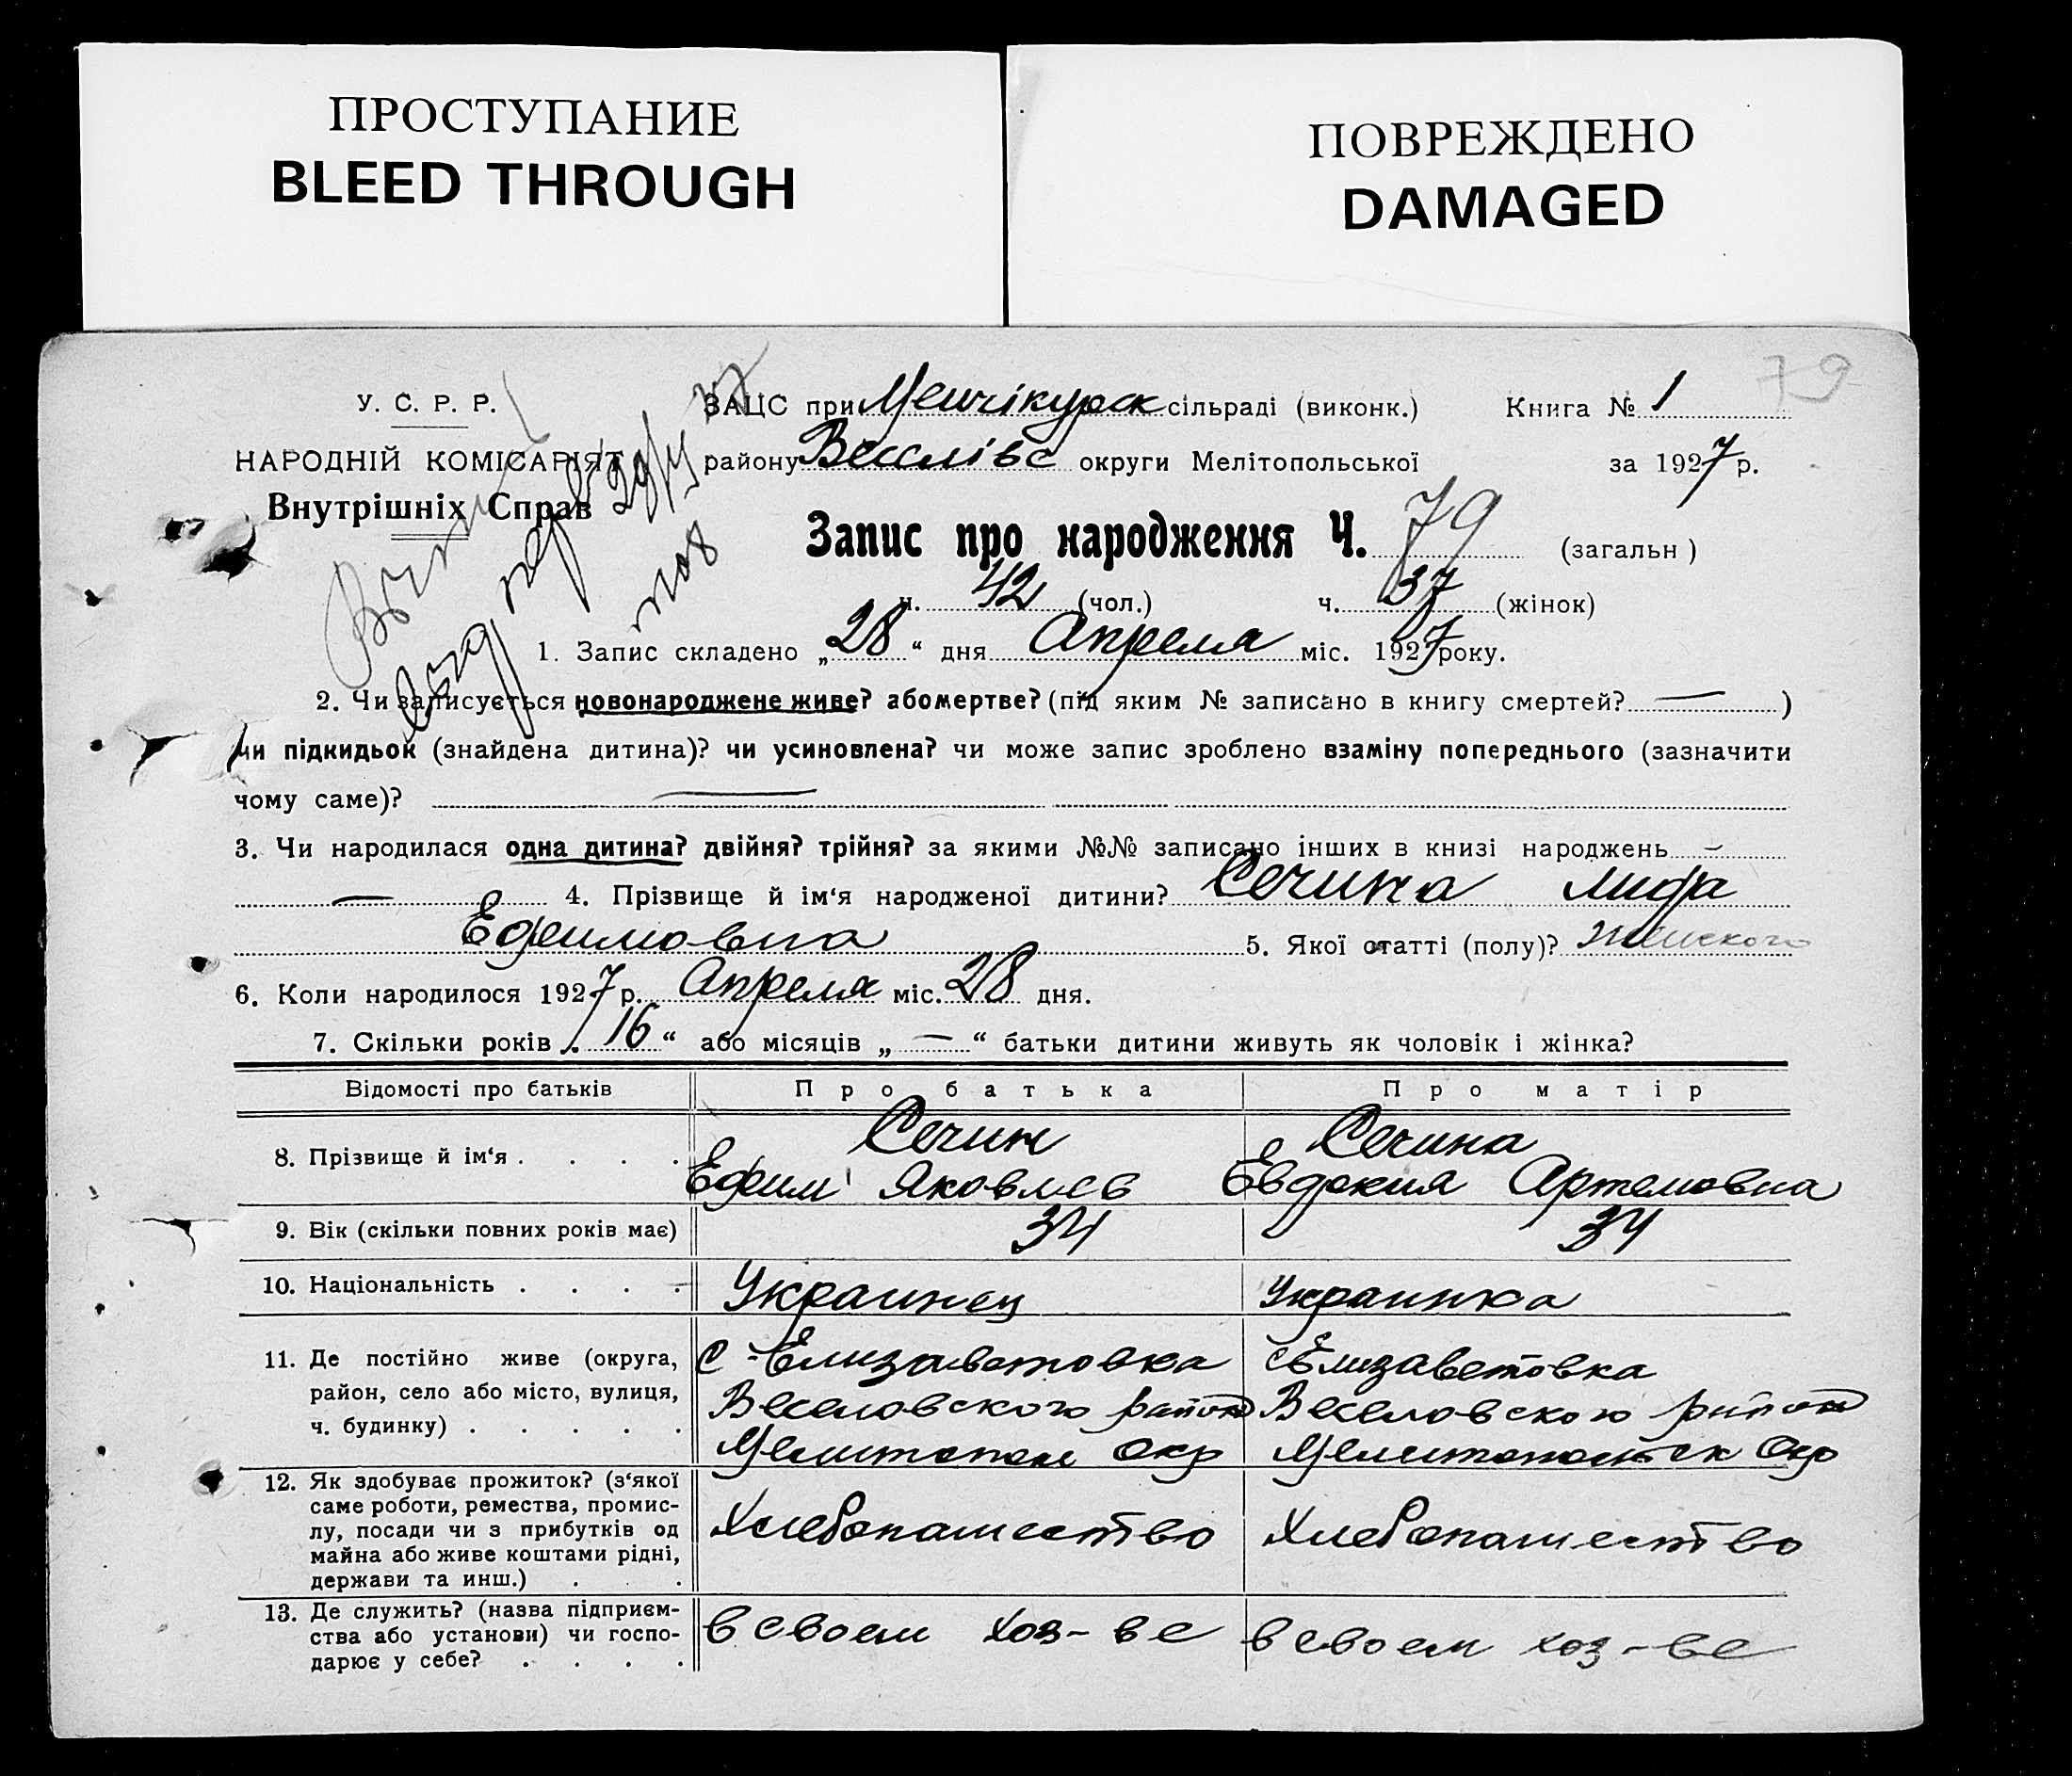 ПРОСТУПАНИЕ
BLEED THROUGH
ПОВРЕЖДЕНО
DAMAGED
79
У. С. Р. Р.
НАРОДНІЙ КОМІСАРІЯТ
Внутрішніх Справ
ЗАЦС при Менчікурск сільраді (виконк.) Книга № 1
району Веселівс округи Мелітопольської за 1927 р.
Запис про народження Ч. 79 (загальн)
ч. 42 (чол.) ч. 37 (жінок)
1. Запис складено „28“ дня Апреля міс. 1927 року.
2. Чи записується новонароджене живе? або мертве? (під яким № записано в книгу смертей? — )
чи підкидьок (знайдена дитина)? чи усиновлена? чи може запис зроблено взаміну попереднього (зазначити
чому саме)? —
3. Чи народилася одна дитина? двійня? трійня? за якими №№ записано інших в книзі народжень —
— 4. Прізвище й ім‘я народженої дитини? Сечина
Ефимовна 5. Якої статті (полу)? женского
6. Коли народилося 1927 р. Апреля міс. 28 дня.
7. Скільки років „16“ або місяців „—“ батьки дитини живуть як чоловік і жінка?
Відомості про батьків Про батька Про матір
8. Прізвище й ім‘я . . . . Сечин Ефим Яковлев Сечина Евдокия Артемовна
9. Вік (скільки повних років має) 34 34
10. Національність . . . . Украинец Украинка
11. Де постійно живе (округа,
район, село або місто, вулиця,
ч. будинку) . . . . .
с Елизаветовка
Веселовского район
Мелитопол Окр
с Елизаветовка
Веселовского район
Мелитопольск Окр
12. Як здобуває прожиток? (з‘якої
саме роботи, ремества, промис-
лу, посади чи з прибутків од
майна або живе коштами рідні,
держави та инш.) . . .
Хлебопашество
Хлебопашество
13. Де служить? (назва підприєм-
ства або установи) чи госпо-
дарює у себе? . . . .
в своем хоз-ве
в своем хоз-ве